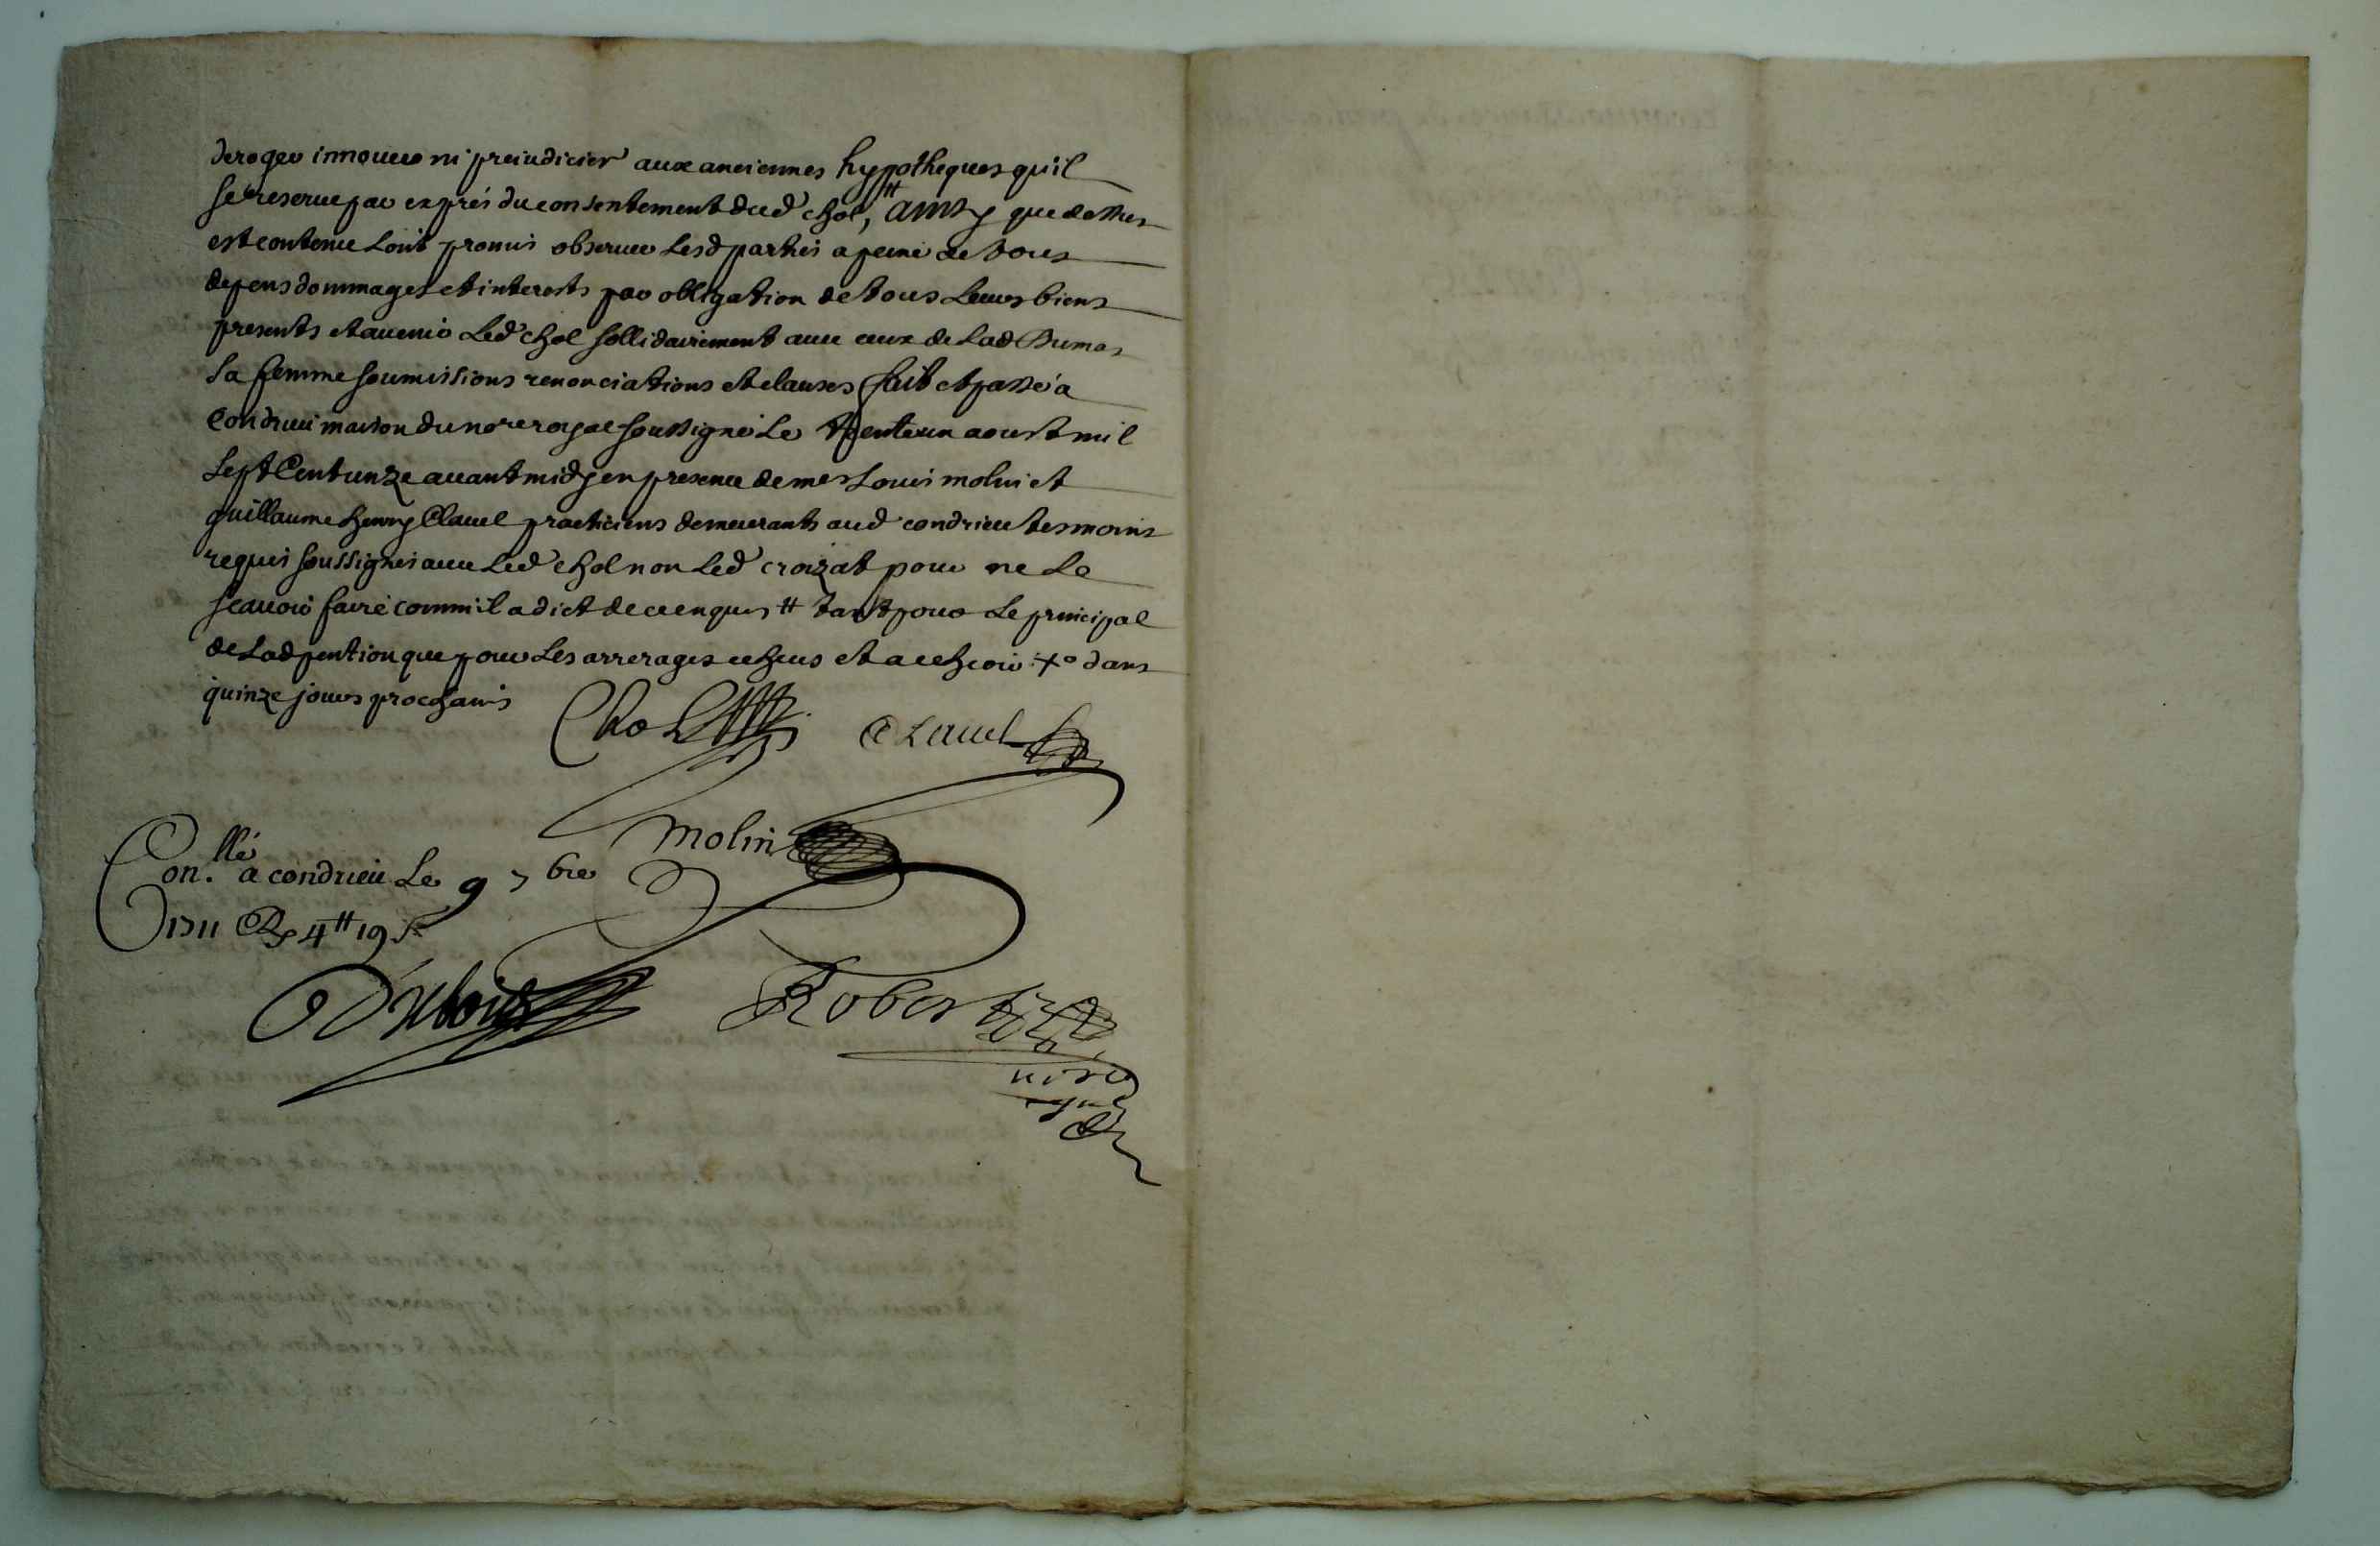 deroger innouer ni preiudicier aux anciennes hypotheques qu'il
se reserue par exprés du consentement dud chol, # ainsy que dessus
est contenu l'ont promis obseruer lesd parties a peine de tous
depens dommages et interests par obligation de tous leurs biens
presents et auenir led chol sollidairement auec ceux de lad Dumas
sa femme soumissions renonciations et clauses fait et passé a
Condrieu maison du nore royal soussigné le trente un aoust mil
sept Cent unze auant midy en presence de mes Louis molin et
guillaume henry Clauel practiciens demeurants aud condrieu tesmoins
requis soussignés auec led chol non led croizat pour ne le
scauoir faire comm'il a dict de ce enquis # tant pour le principal
de lad pention que pour les arrerages echeus et a echeoir +o dans
quinze jours prochains
Chol Clauel
Molin
Con.llé a condrieu le 9 7bre
1711 R 4# 19 s
Robert